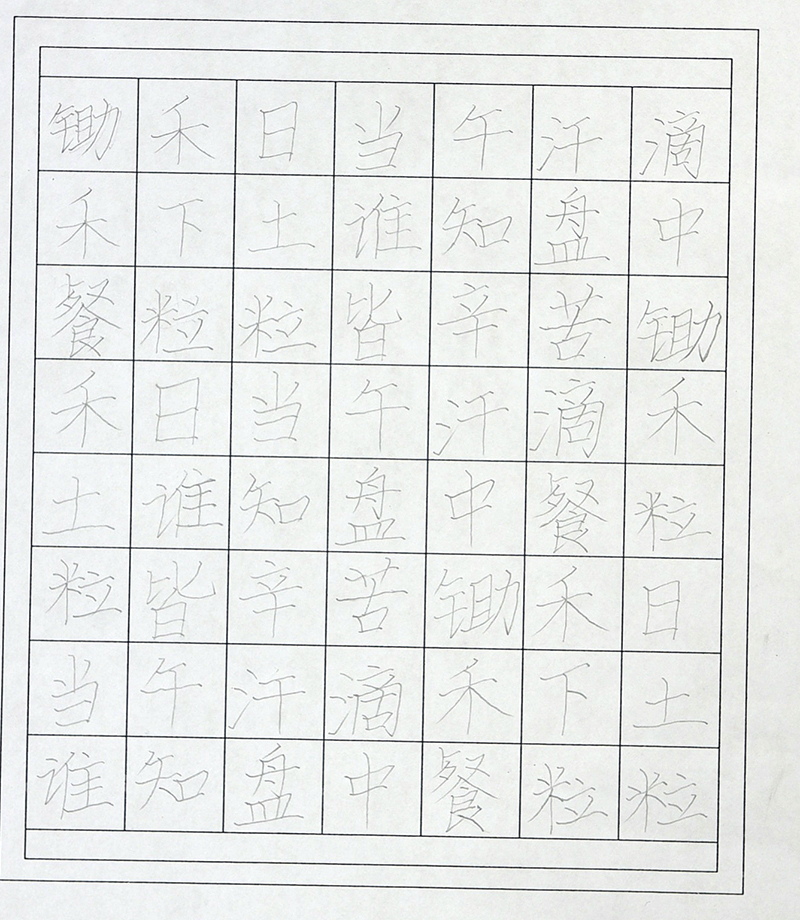 锄禾日当午汗滴
禾下土谁知盘中
餐粒粒皆辛苦锄
禾日当午汗滴禾
土谁知盘中餐粒
粒皆辛苦锄禾日
当午汗滴禾下土
谁知盘中餐粒粒